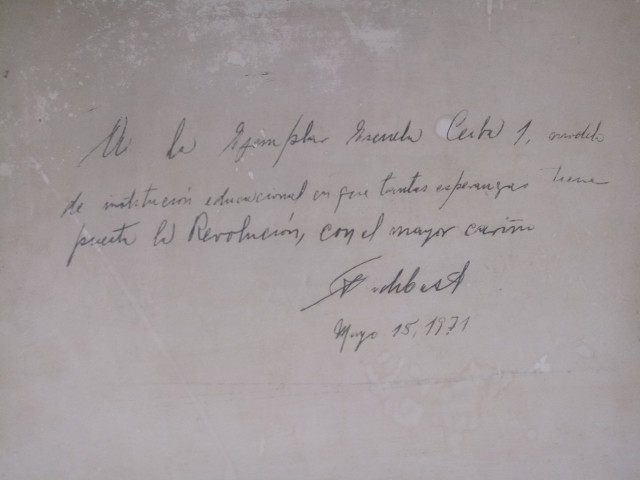 A la Ejemplar Escuela Ceiba 1, modelo
de institución educacional en que tantas esperanzas tiene
puesta la Revolución, con el mayor cariño
Mayo 15, 1971